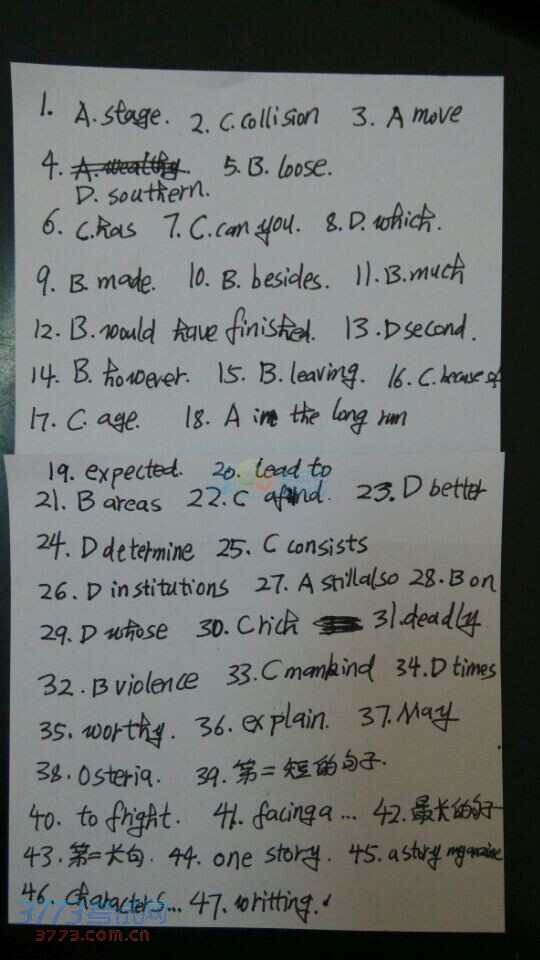 1. A. stage. 2. C. collision 3. A move
4. A. wealthy 5. B. loose.
D. southern.
6. C. has 7. C. can you. 8. D. which.
9. B. made. 10. B. besides. 11. B. much
12. B. would have finished. 13. D second.
14. B. however. 15. B. leaving. 16. C. because of
17. C. age. 18. A in the long run
19. expected. 20. lead to
21. B areas 22. C and. 23. D better
24. D determine 25. C consists
26. D institutions 27. A still also 28. B on
29. D whose 30. C rich 31. deadly
32. B violence 33. C mankind 34. D times
35. worthy. 36. explain. 37. May
38. Osteria. 39. 第二短的句子.
40. to fright. 41. facing a ... 42. 最长的句子
43. 第二长句. 44. one story. 45. a story magazine
46. Characters... 47. writting.
3773考试网
3773.com.cn